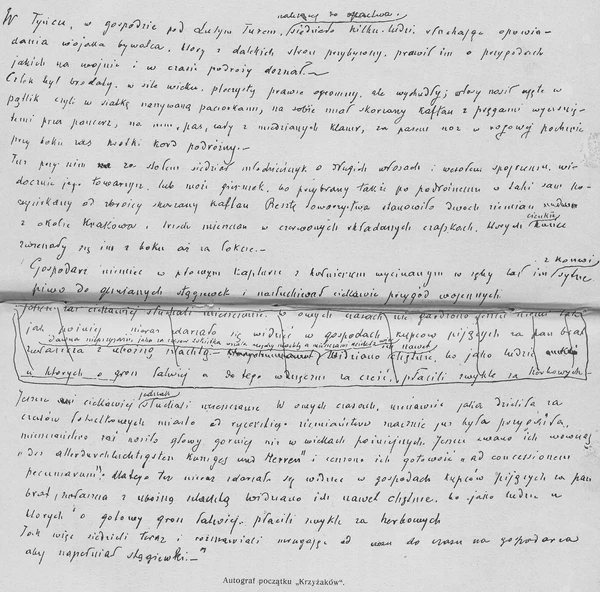 należącej do opactwa,
W Tyńcu, w gospodzie pod Lutym Turem, siedziało kilku ludzi, słuchając opowia-
dania wojaka bywalca, który z dalekich stron przybywszy, prawił im o przygodach
jakich na wojnie i w czasie podróży doznał.—
Człek był brodaty, w sile wieku, pleczysty prawie ogromny, ale wychudły; włosy nosił ujęte w
pątlik czyli w siatkę naszywaną paciorkami, na sobie miał skórzany kaftan z pręgami wyciśnię-
temi przez pancerz, na nim pas, cały z miedzianych klamr, za pasem nóż w rogowej pochwie
przy boku zaś krótki kord podróżny.—
Tuż przy nim za stołem siedział młodzieńczyk o długich włosach i wesołem spojrzeniu, wi-
docznie jego towarzysz, lub może giermek, bo przybrany także po podróżnemu w taki sam po-
wyciskany od zbroicy skórzany kaftan. Resztę towarzystwa stanowiło dwóch ziemian
z okolic Krakowa i trzech mieszczan w czerwonych składanych czapkach, których cienkie końce
zwieszały się im z boku aż na łokcie.—
Gospodarz niemiec w płowym kapturze z kołnierzem wycinanym w zęby lał im z konwi sytne
piwo do glinianych stągiewek i nasłuchiwał ciekawie przygód wojennych.
Jeszcze zaś ciekawiej słuchali mieszczanie. W owych czasach nie
jak później nieraz zdarzało się widzieć w gospodach kupców pijących za pan brat
zwłaszcza z uboższą szlachtą.— Widziano ich nawet chętnie, bo jako ludzie
u których o grosz łatwiej a do tego wdzięczni za cześć, płacili zwykle za herbowych.—
Jeszcze ciekawiej jednak słuchali mieszczanie. W owych czasach, nienawiść jaka dzieliła za
czasów Łokietkowych miasto od rycerskiego ziemiaństwa znacznie już była przygasła,
mieszczaństwo zaś nosiło głowy górniej niż w wiekach późniejszych. Jeszcze zwano ich wówczas
„des allerdurchluchtigsten Kuniges und Herren" i ceniono ich gotowość „ad concessionem
pecuniarum"; dlatego też nieraz zdarzało się widzieć w gospodach kupców pijących za pan
brat zwłaszcza z uboższą szlachtą. Widziano ich nawet chętnie, bo jako ludzie u
których o gotowy grosz łatwiej, płacili zwykle za herbowych
Tak więc siedzieli teraz i rozmawiali mrugając od czasu do czasu na gospodarza
aby napełniał stągiewki.—"
Autograf początku „Krzyżaków".